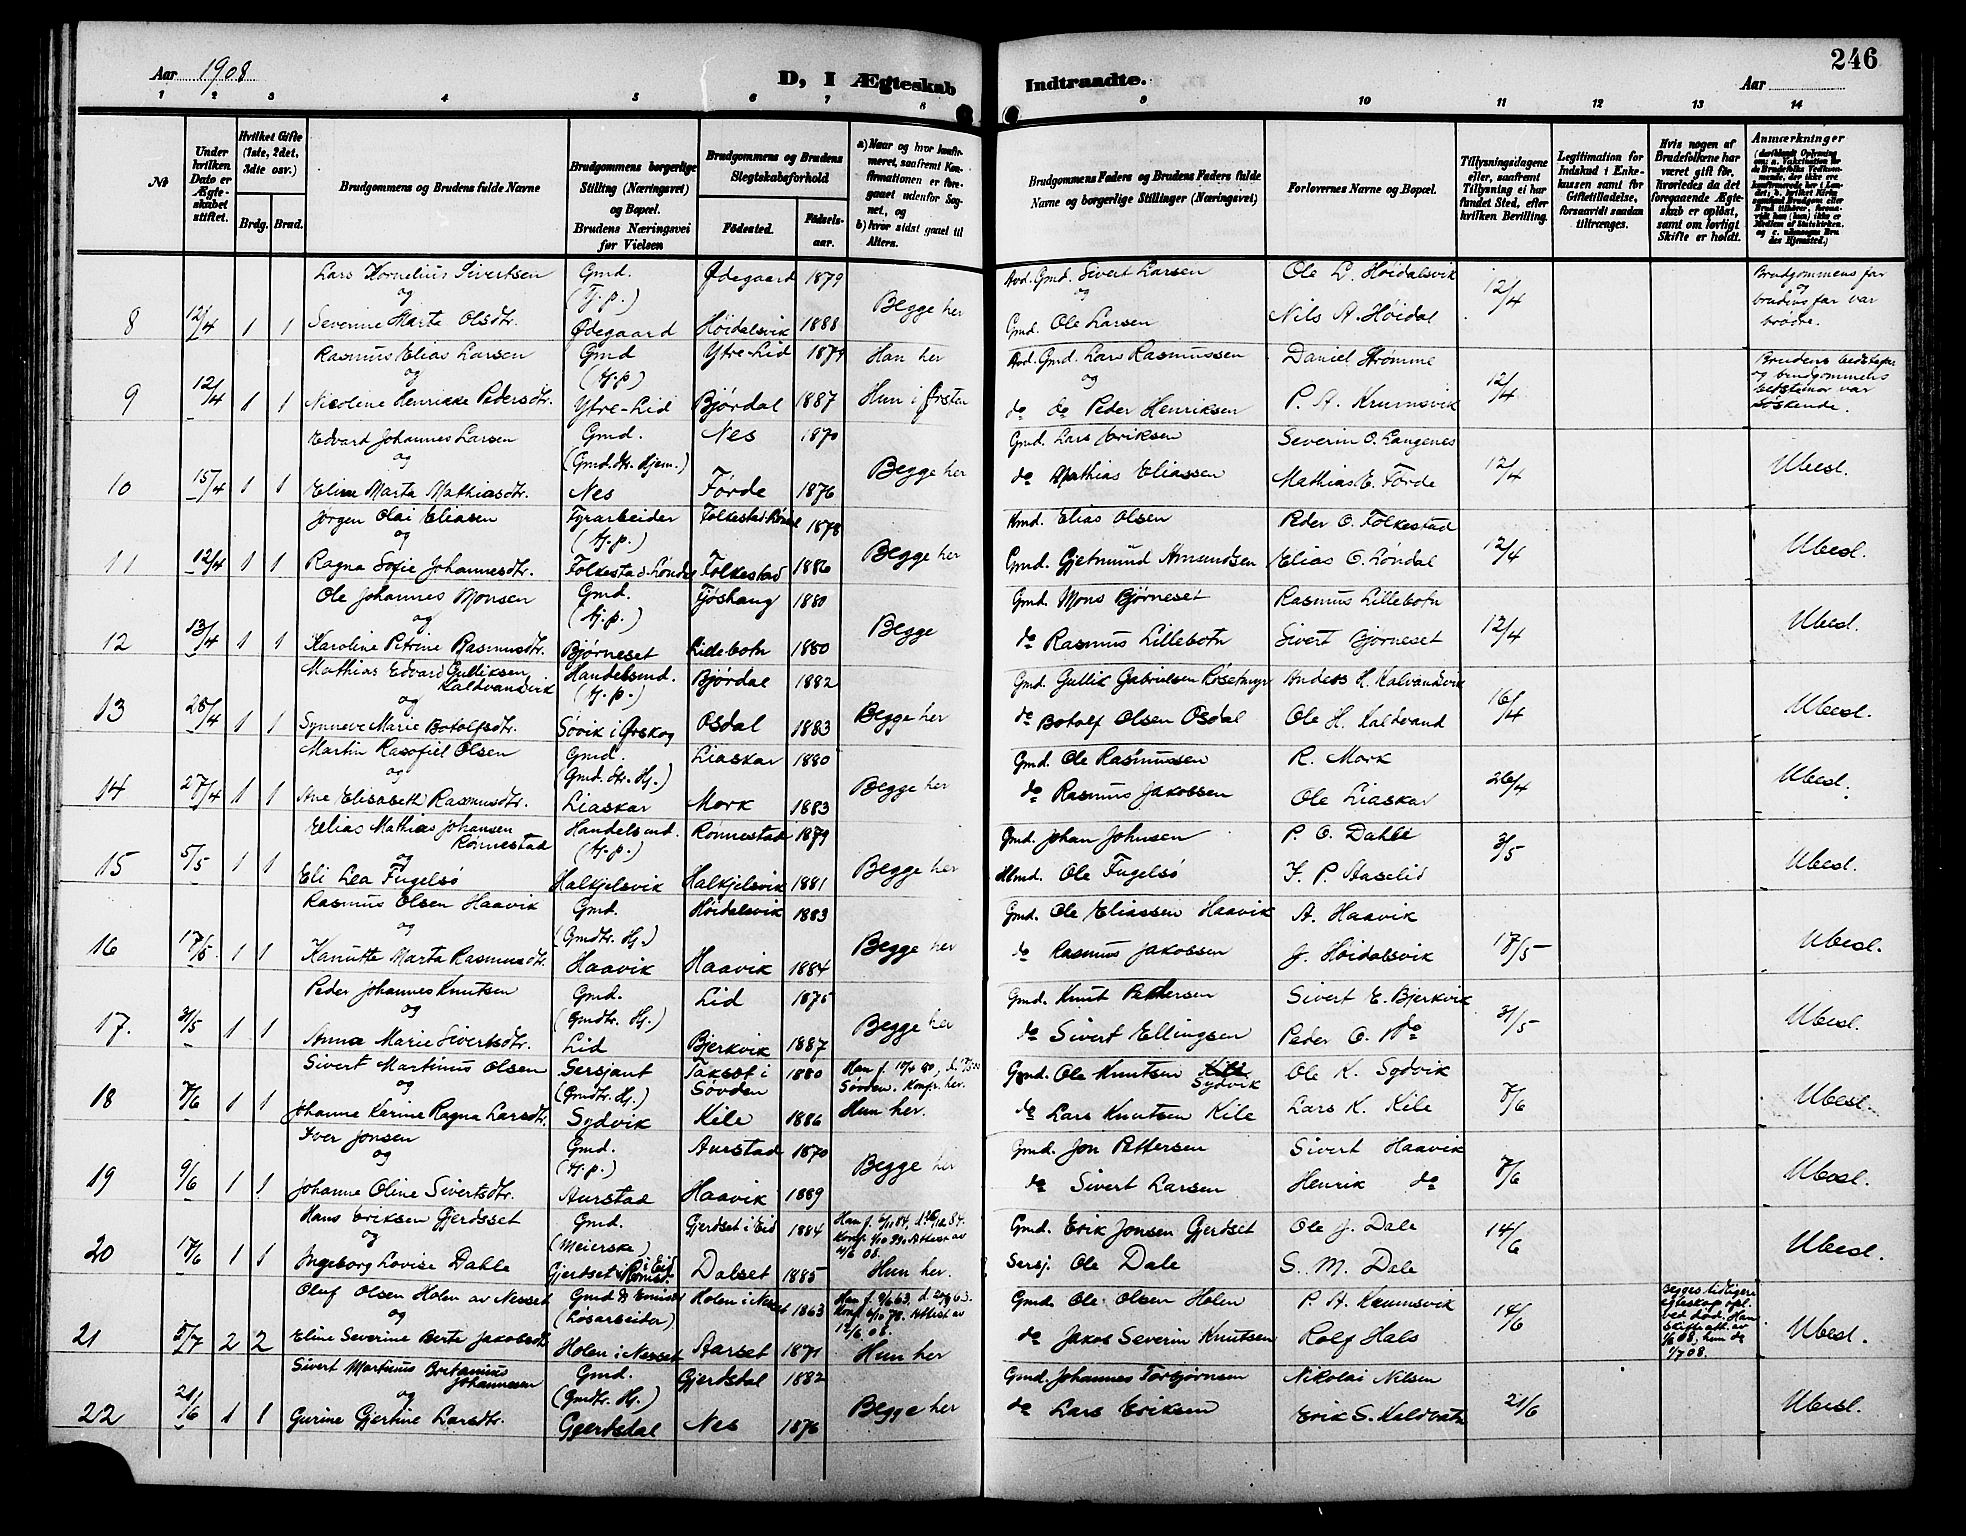 Aar 1908
D, I Ægteskab Indtraadte.
Aar
246
1 2 3 4 5 6 7 8 9 10 11 12 13 14
No
Under hvilken Dato er Ægteskabet stiftet.
Hvilket Gifte (1ste, 2det, 3die osv.)
Brdg. Brud.
Brudgommens og Brudens fulde Navne
Brudgommens borgerlige Stilling (Næringsvei) og Bopæl. Brudens Næringsvei før Vielsen
Brudgommens og Brudens Slegtskabsforhold
Fødested. Fødselsaar.
a) Naar og hvor konfirmeret, saafremt Konfirmationen er foregaaet udenfor Sognet, og
b) hvor sidst gaaet til Alters.
Brudgommens Faders og Brudens Faders fulde Navne og borgerlige Stillinger (Næringsvei)
Forlovernes Navne og Bopæl.
Tillysningsdagene eller, saafremt Tillysning ei har fundet Sted, efter hvilken Bevilling.
Legitimation for Indskud i Enkekassen samt for Giftetilladelse, forsaavidt saadan tiltrænges.
Hvis nogen af Brudefolkene har været gift før, hvorledes da det foregaaende Ægteskab er opløst, samt om lovligt Skifte er holdt.
Anmærkninger
Lars Kornelius Sivertsen Gmd. Ødegaard 1879 Avd. Gmd. Sivert Larsen Ole L. Høidalsvik Brudgommens far
og (Tj.p.) Begge her og 12/4 og
8 12/4 1 1 Severine Marta Olsdtr. Ødegaard Høidalsvik 1888 Gmd. Ole Larsen Nils A. Høidal brudens far var brødre.
Rasmus Elias Larsen Gmd Ytre-Lid 1879 Han her Avd. Gmd. Lars Rasmussen Daniel Strømme Brudens bedstefar
og (Tj.p) og 12/4 og brudgommens
9 12/4 1 1 Nicoline Henrikke Pedersdtr. Ytre-Lid Bjørdal 1887 Hun i Ørsten do do Peder Henriksen P. A. Krumsvik bedstemor var søskende.
Edvard Johannes Larsen Gmd. Nes 1870 Gmd. Lars Eriksen Severin O. Langenes
og (Gmd.dtr. Hjem.) Begge her 12/4 Ubesl.
10 15/4 1 1 Eline Marta Mathiasdtr. Nes Førde 1876 do Mathias Eliassen Mathias E. Førde
Jørgen Olai Eliasen Fyrarbeider 1878 Elias Olsen Peder O. Folkestad
og (Tj.p.) Begge her 12/4 Ubesl.
11 12/4 1 1 Ragna Sofie Johannesdtr. Folkestad 1886 Gmd. Gjetmund Amundsen Elias O. Løndal
Ole Johannes Monsen Gmd. 1880 Gmd. Mons Bjørneset Rasmus Lillebotn
og (Tj.p.) Begge 12/4 Ubesl.
12 13/4 1 1 Karoline Petrine Rasmusdtr. Bjørneset Lillebotn 1880 do Rasmus Lillebotn Sivert Bjørneset
Mathias Edvard Gulliksen Kaldvandsvik Handelsmd. Bjørdal 1882 Gmd. Gullik Gabrielsen Røsetmyr Anders H. Kalvandsvik
og (Tj.p.) Begge her 16/4 Ubesl.
13 28/4 1 1 Synneve Marie Botolfsdtr. Søvik i Ørskog Osdal 1883 do Botolf Olsen Osdal Ole H. Kaldvand
Martin Rasofiel Olsen Gmd. Liaskar 1880 Gmd. Ole Rasmussen R. Mork
og (Gmd.dtr. Hj.) Begge her 26/4 Ubesl.
14 27/4 1 1 Ane Elisabeth Rasmusdtr. Liaskar Mork 1883 do Rasmus Jakobsen Ole Liaskar
Elias Mathias Johansen Rønnestad Handelsmd. Rønnestad 1879 Gmd. Johan Johnsen P. O. Dahle
og (Tj.p.) Begge her 3/5 Ubesl.
15 5/5 1 1 Eli Lea Fugelsø Halkjelsvik Halkjelsvik 1881 Ole Fugelsø
Rasmus Olsen Haavik Gmd. Høidalsvik 1883 Gmd. Ole Eliassen Haavik A. Haavik
og (Gmdtr. Hj.) Begge her 17/5 Ubesl.
16 17/5 1 1 Kanutte Marta Rasmusdtr. Haavik Haavik 1884 do Rasmus Jakobsen J. Høidalsvik
Peder Johannes Knutsen Gmd. Lid 1875 Gmd. Knut Pedersen Sivert E. Bjerkvik
og (Gmdtr. Hj.) Begge her 31/5 Ubesl.
17. 31/5 1 1 Anna Marie Sivertsdtr. Lid Bjerkvik 1887 do Sivert Ellingsen Peder O. do
Sivert Martinus Olsen Sersjant Søvden 1880 Søvden. Konf. her. Gmd. Ole Knutsen Sydvik Ole K. Sydvik
og (Gmdtr. Hj.) 7/6 Ubesl.
18 7/6 1 1 Johanne Karine Ragna Larsdtr. Sydvik Kile 1886 Hun her. do Lars Knutsen Kile Lars K. Kile
Iver Jonsen Gmd. Aurstad 1870 Gmd. Jon Pettersen Sivert Haavik
og (Tj.p.) Begge her 7/6 Ubesl.
19 9/6 1 1 Johanne Oline Sivertsdtr. Aurstad Haavik 1889 do Sivert Larsen Henrik do
Hans Eriksen Gjerdset Gmd. Gjerdset i Eid 1884 Gmd. Erik Jonsen Gjerdset Ole J. Dale
og (Meierske) 14/6 Ubesl.
20 17/6 1 1 Ingeborg Lovise Dahle Gjerdset i Eid Dalset 1885 Hun her. Sersj. Ole Dale S. M. Dale
Oluf Olsen Holen av Nesset Gmd Holen i Nesset 1863 Gmd. Ole Olsen Holen P. A. Krumsvik
og (Løsarbeider) 14/6 Begges tidligere egteskap opl. ved død. Ubesl.
21 5/7 2 2 Eline Severine Berte Jakobsdtr. Holen i Nesset Aarset 1871 Hun her do Jakob Severin Knutsen Rolf Hals
Sivert Martinus Bretanius Johannesen Gmd. Gjerdsdal 1882 Gmd. Johannes Torbjørnsen Nikolai Nilsen
og (Gmdtr. Hj.) Begge her 21/6 Ubesl.
22 21/6 1 1 Gurine Gjertine Larsdtr. Gjerdsdal Nes 1876 do Lars Eriksen Erik S. Kaldvatn